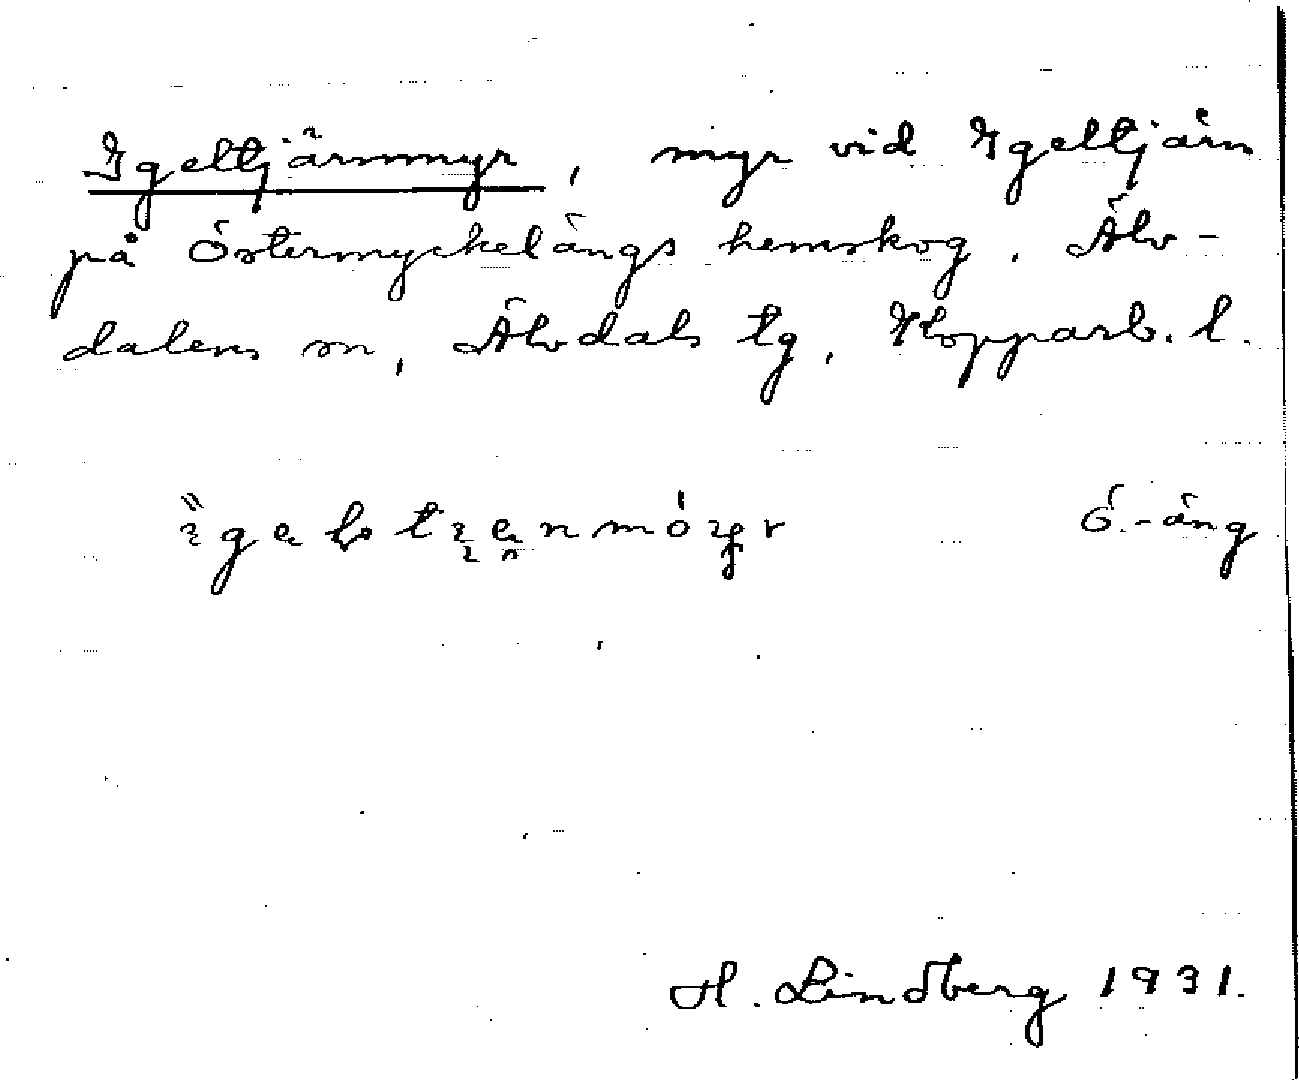 Igeltjärnmyr, myr vid Igeltjärn
på Östermyckelängs hemskog. Älv-
dalens sn, Älvdals tg, Kopparb. l.
Ö.-äng
H. Lindberg 1931.